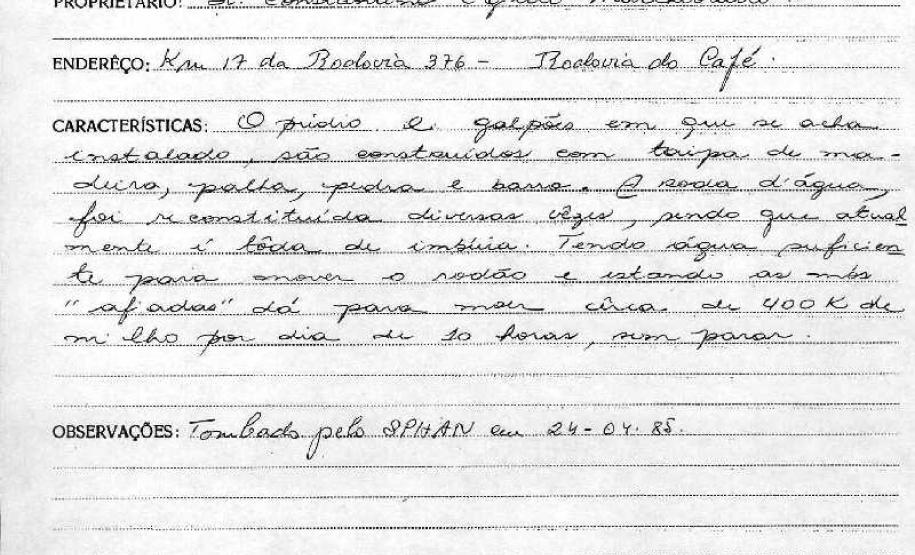 PROPRIETÁRIO: Sr.
ENDERÊÇO: Km 17 da Rodovia 376 - Rodovia do Café.
CARACTERÍSTICAS: O prédio e galpões em que se acha
instalado, são construídos com taipa de ma-
deira, palha, pedra e barro. A roda d'água,
foi reconstituída diversas vêzes, sendo que atual
mente é tôda de imbúia. Tendo água suficien
te para mover o rodão e estando as mós
"afiadas" dá para moer cêrca de 400 K de
milho por dia de 10 horas, sem parar.
OBSERVAÇÕES: Tombado pelo SPHAN em 24-04-85.